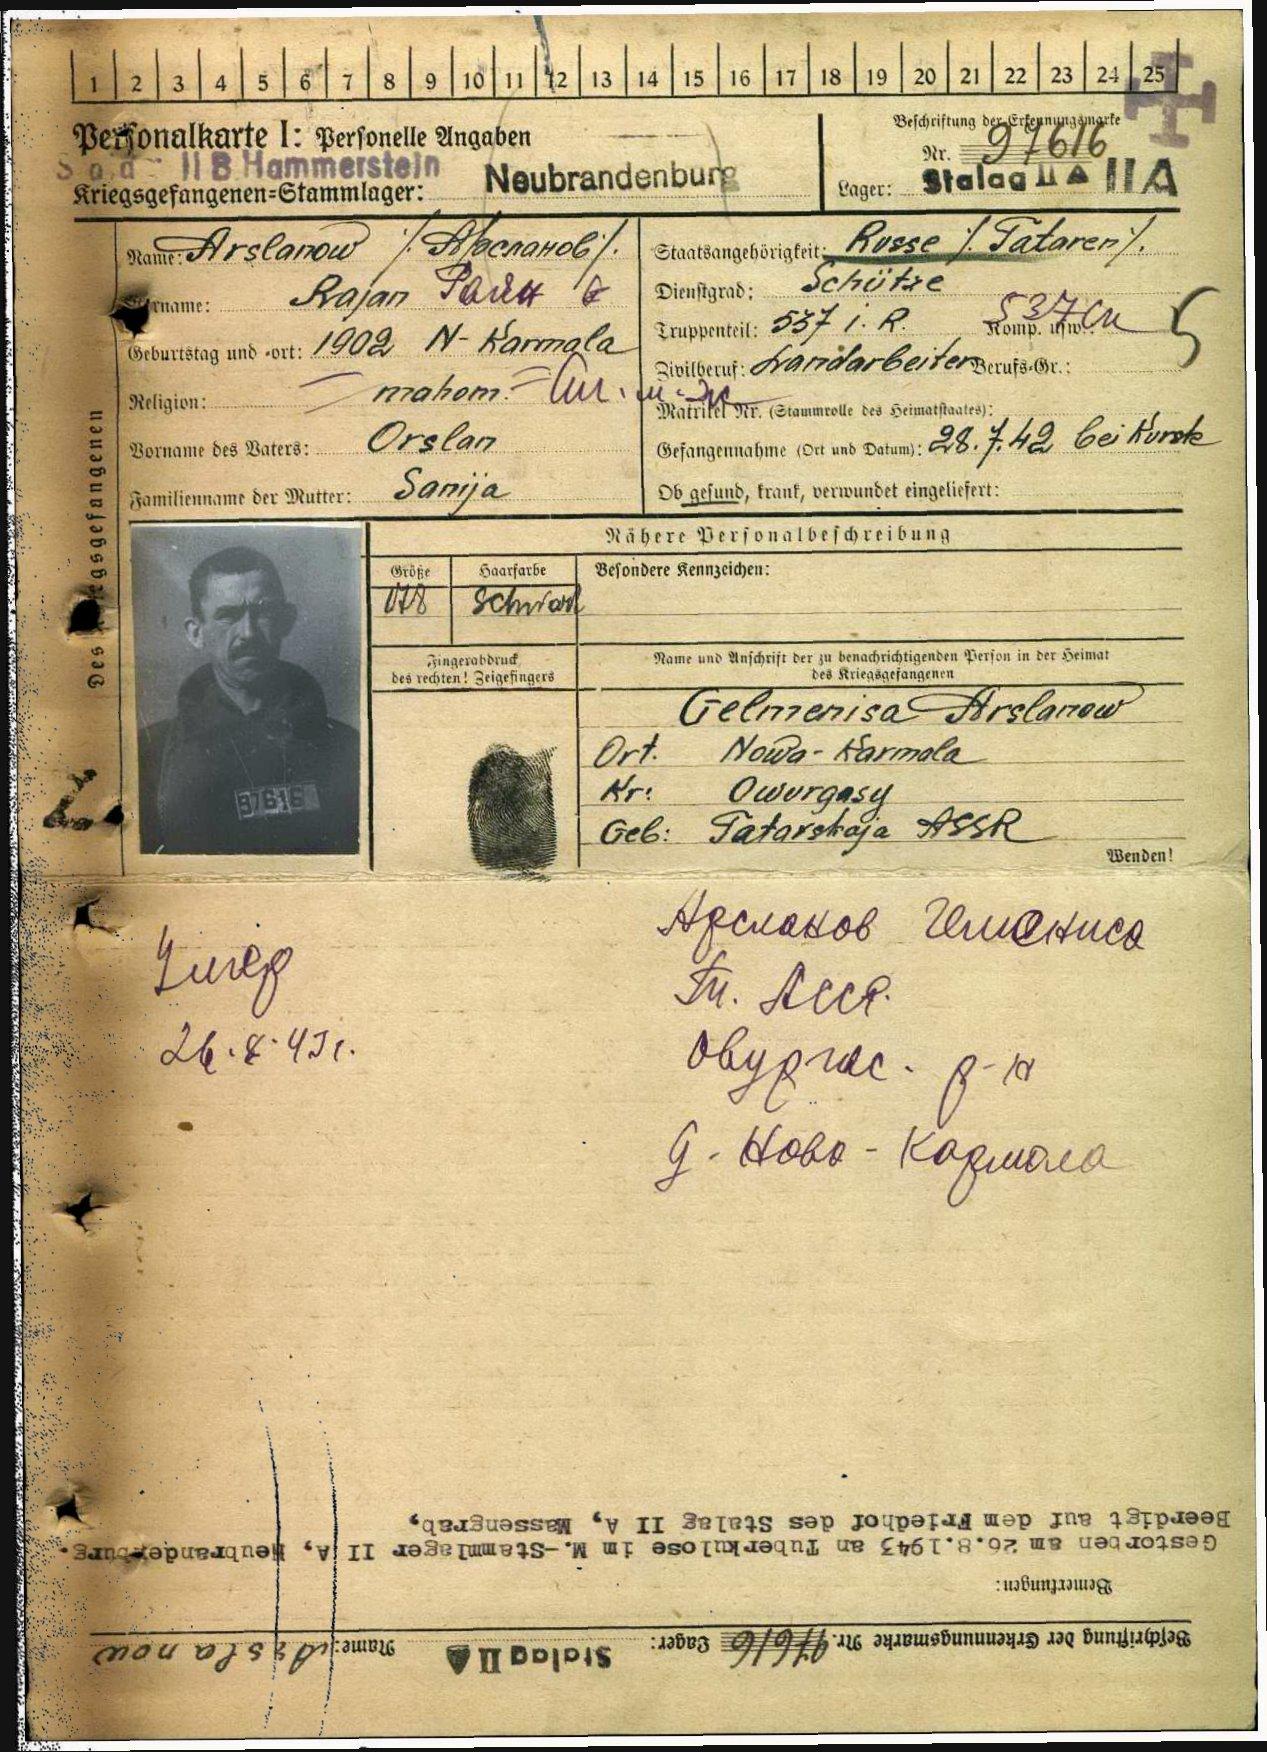 1 2 3 4 5 6 7 8 9 10 11 12 13 14 15 16 17 18 19 20 21 22 23 24 25
Personalkarte I: Personelle Angaben
II B Hammerstein
Kriegsgefangenen=Stammlager: Neubrandenburg
Beschriftung der Erkennungsmarke
Nr. 97616
Lager: Stalag II A II A
Des Kriegsgefangenen
Name: Arslanow /. Арсланов /.
Vorname: Rajan Раян
Geburtstag und -ort: 1902 N-Karmala
Religion: mahom.
Vorname des Vaters: Orslan
Familienname der Mutter: Sanija
Staatsangehörigkeit: Russe /. Tataren /.
Dienstgrad: Schütze
Truppenteil: 537 i. R. Komp. usw.: 537
Zivilberuf: Landarbeiter Berufs-Gr.:
Matrikel Nr. (Stammrolle des Heimatstaates):
Gefangennahme (Ort und Datum): 28.7.42 bei Kursk
Ob gesund, krank, verwundet eingeliefert:
Nähere Personalbeschreibung
Größe
Haarfarbe
Besondere Kennzeichen:
178
Schwarz
Fingerabdruck
des rechten! Zeigefingers
Name und Anschrift der zu benachrichtigenden Person in der Heimat
des Kriegsgefangenen
Gelmenisa Arslanow
Ort. Nowa-Karmala
Kr: Owurgasy
Geb: Tatarskaja ASSR
Wenden!
97616
Арсланов Гелмениса
Тт. Асср.
Овургас. р-н
д. Ново-Кармала
Умер
26.8.43г.
Beschriftung der Erkennungsmarke Nr. 97616 Lager: Stalag II A Name: Arslanow
Bemerkungen:
Gestorben am 26.8.1943 an Tuberkulose im M.-Stammlager II A, Neubrandenburg.
Beerdigt auf dem Friedhof des Stalag II A, Massengrab,